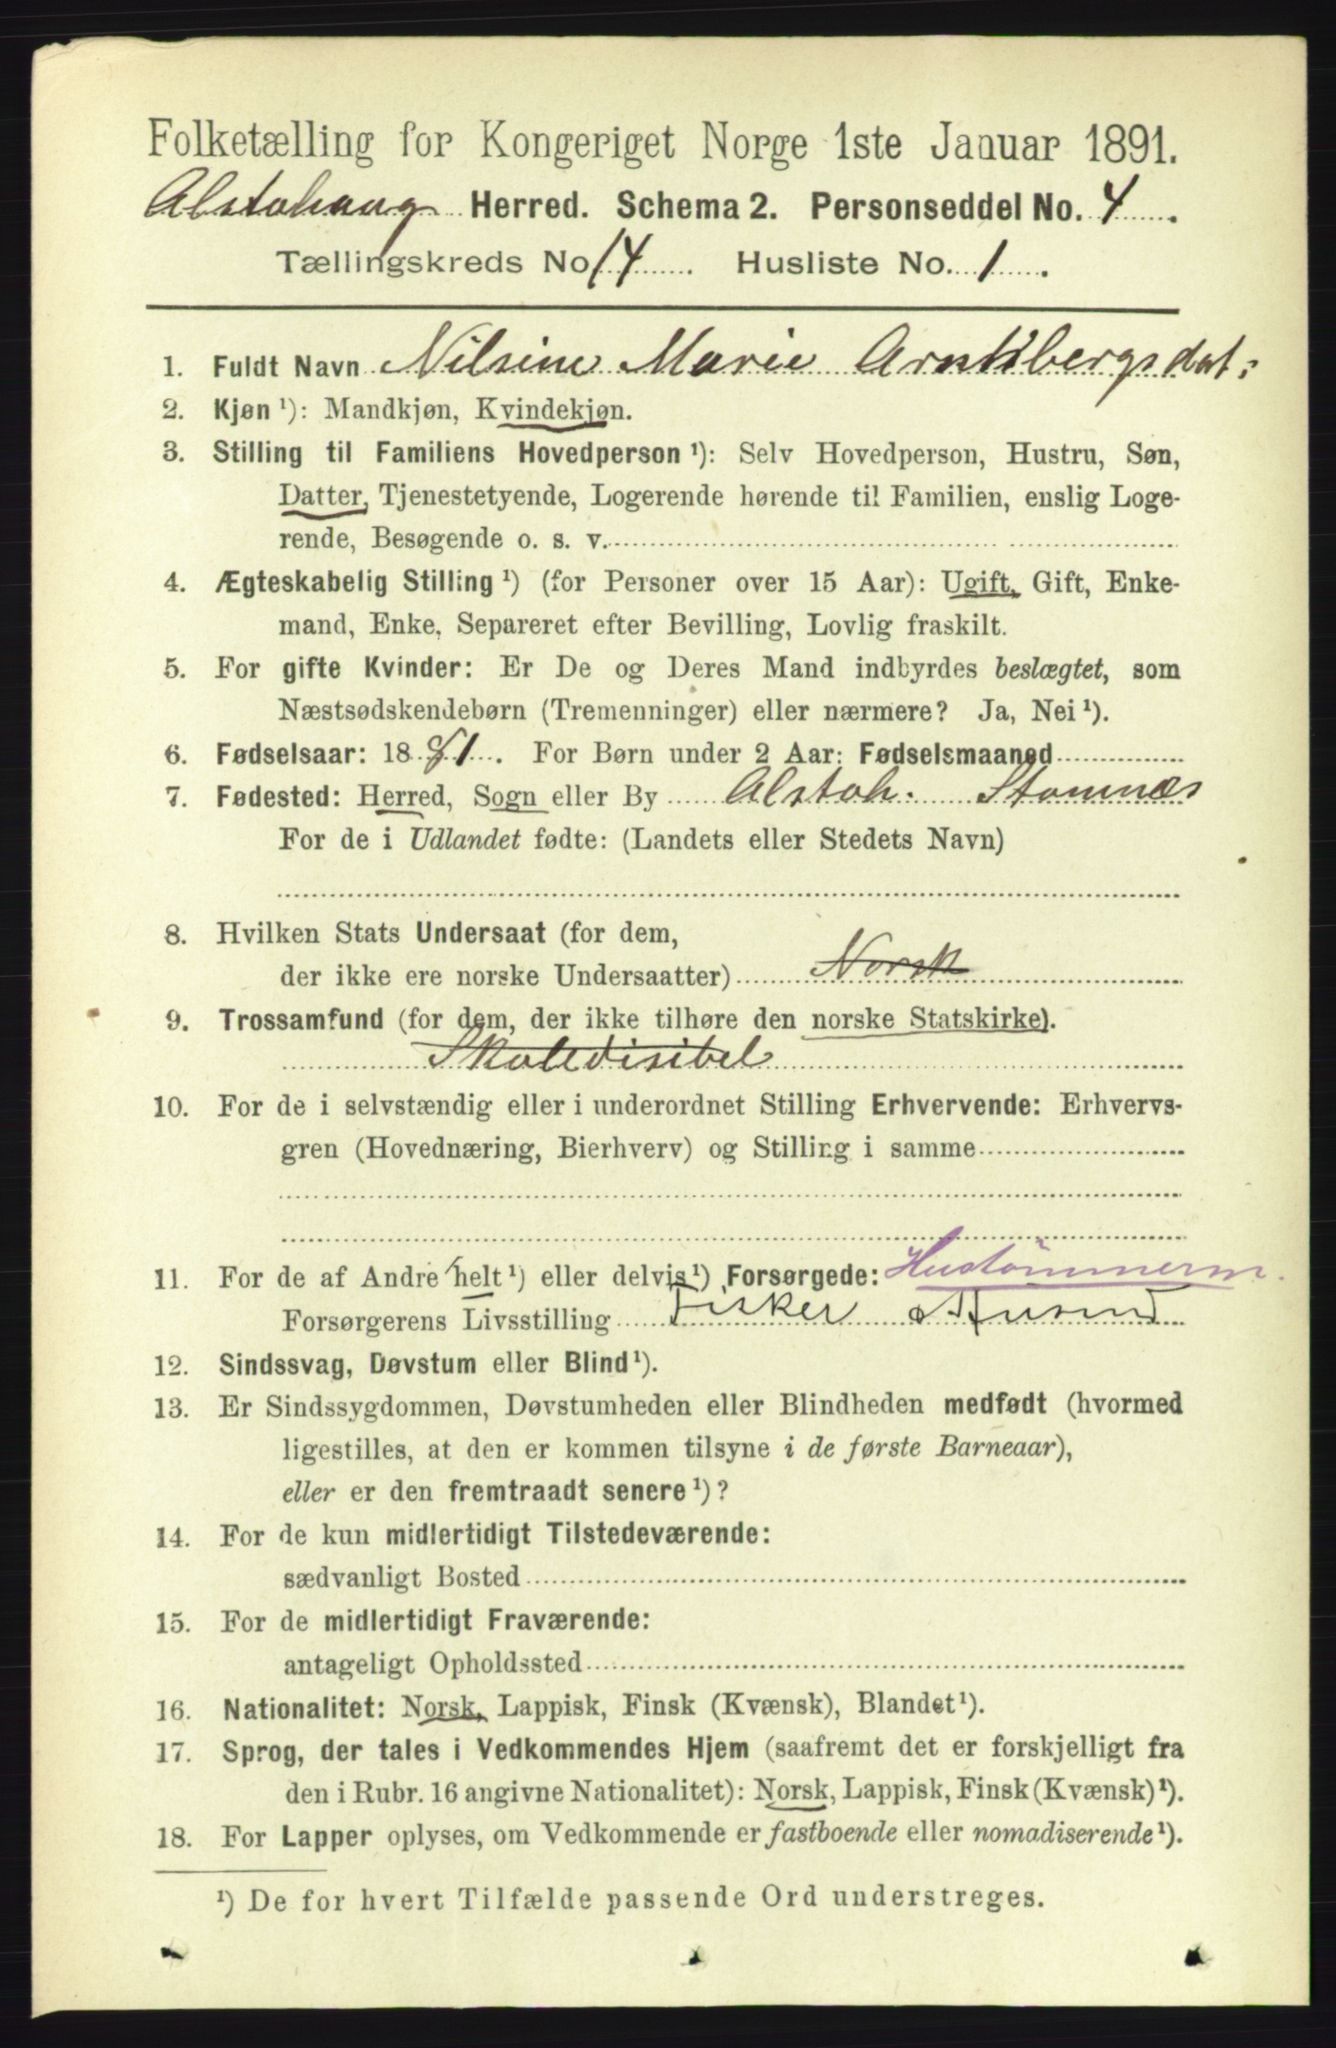 Folketælling for Kongeriget Norge 1ste Januar 1891.
Alstahaug Herred. Schema 2. Personseddel No. 4
Tællingskreds No. 14 Husliste No. 1
1. Fuldt Navn Nilsine Marie Arntsbergsdat:
2. Kjøn ¹): Mandkjøn, Kvindekjøn.
3. Stilling til Familiens Hovedperson ¹): Selv Hovedperson, Hustru, Søn,
Datter, Tjenestetyende, Logerende hørende til Familien, enslig Loge-
rende, Besøgende o. s. v.
4. Ægteskabelig Stilling ¹) (for Personer over 15 Aar): Ugift, Gift, Enke-
mand, Enke, Separeret efter Bevilling, Lovlig fraskilt.
5. For gifte Kvinder: Er De og Deres Mand indbyrdes beslægtet, som
Næstsødskendebørn (Tremenninger) eller nærmere? Ja, Nei ¹).
6. Fødselsaar: 1881. For Børn under 2 Aar: Fødselsmaaned
7. Fødested: Herred, Sogn eller By Alstah. Stamnæs
For de i Udlandet fødte: (Landets eller Stedets Navn)
8. Hvilken Stats Undersaat (for dem,
der ikke ere norske Undersaatter) Norsk
9. Trossamfund (for dem, der ikke tilhøre den norske Statskirke).
10. For de i selvstændig eller i underordnet Stilling Erhvervende: Erhvervs-
gren (Hovednæring, Bierhverv) og Stilling i samme
11. For de af Andre helt ¹) eller delvis ¹) Forsørgede: Hustømmerm.
Forsørgerens Livsstilling Fisker
12. Sindssvag, Døvstum eller Blind ¹).
13. Er Sindssygdommen, Døvstumheden eller Blindheden medfødt (hvormed
ligestilles, at den er kommen tilsyne i de første Barneaar),
eller er den fremtraadt senere ¹)?
14. For de kun midlertidigt Tilstedeværende:
sædvanligt Bosted
15. For de midlertidigt Fraværende:
antageligt Opholdssted
16. Nationalitet: Norsk, Lappisk, Finsk (Kvænsk), Blandet ¹).
17. Sprog, der tales i Vedkommendes Hjem (saafremt det er forskjelligt fra
den i Rubr. 16 angivne Nationalitet): Norsk, Lappisk, Finsk (Kvænsk) ¹).
18. For Lapper oplyses, om Vedkommende er fastboende eller nomadiserende ¹).
¹) De for hvert Tilfælde passende Ord understreges.